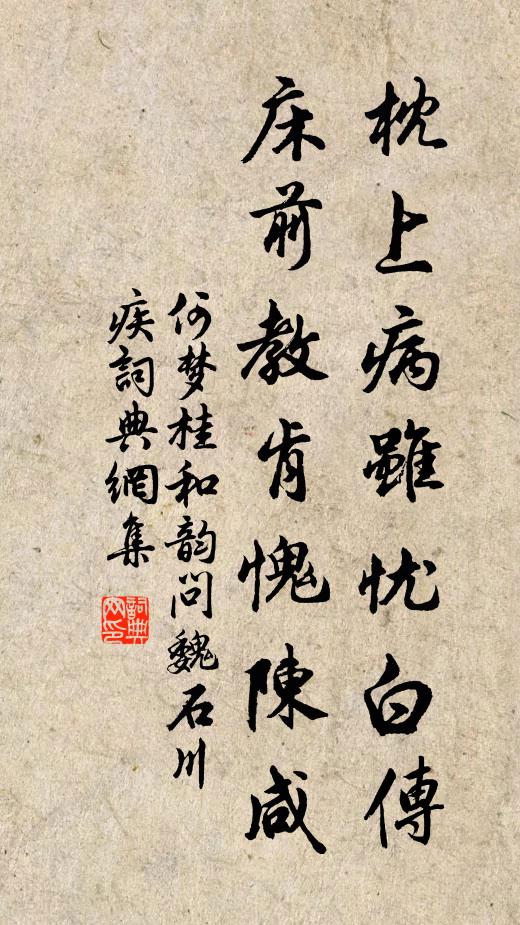 枕上病雖忧白傳
床前教肯愧陳咸
何梦桂和韵问魏石川
疾詞典網集
詞典网印